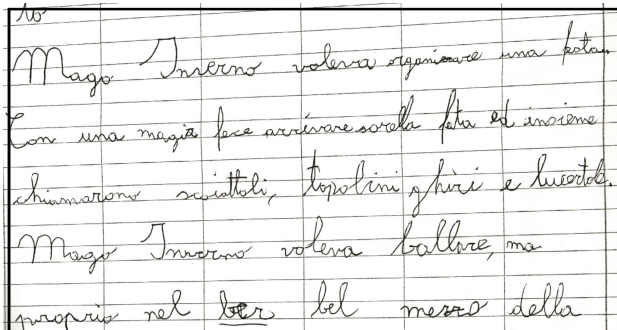 to
Mago Inverno voleva organizzare una festa.
Con una magia fece arrivare sorella fata ed insieme
chiamarono scoiattoli, topolini ghiri e lucertole.
Mago Inverno voleva ballare, ma
proprio nel ber bel mezzo della